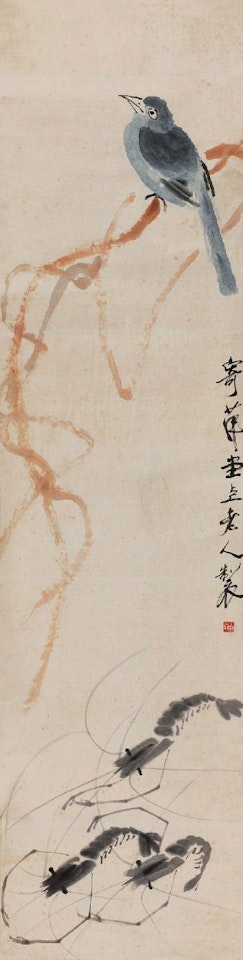 寄萍堂上老人製